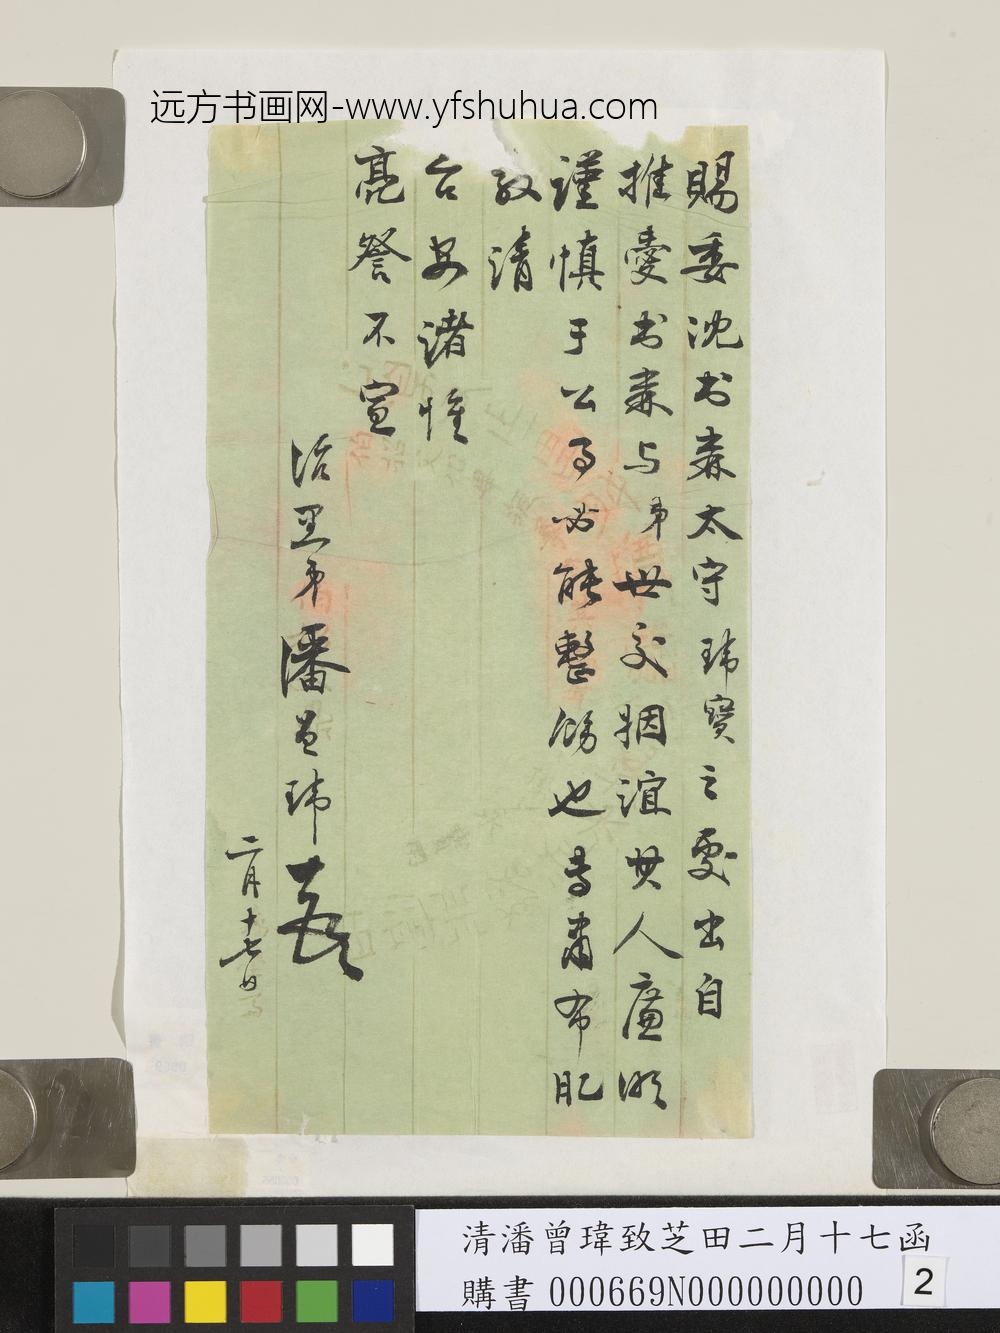 远方书画网-www.yfshuhua.com
賜委沈书森太守玮寶之妥出自
推愛书森与弟世交姻誼其人廉明
謹慎于公事必能整飭也专肅布肊
敬請
台安諸惟
亮詧不宣
治里弟潘曾玮
二月十七日
清潘曾瑋致芝田二月十七函
購書 000669N000000000
2